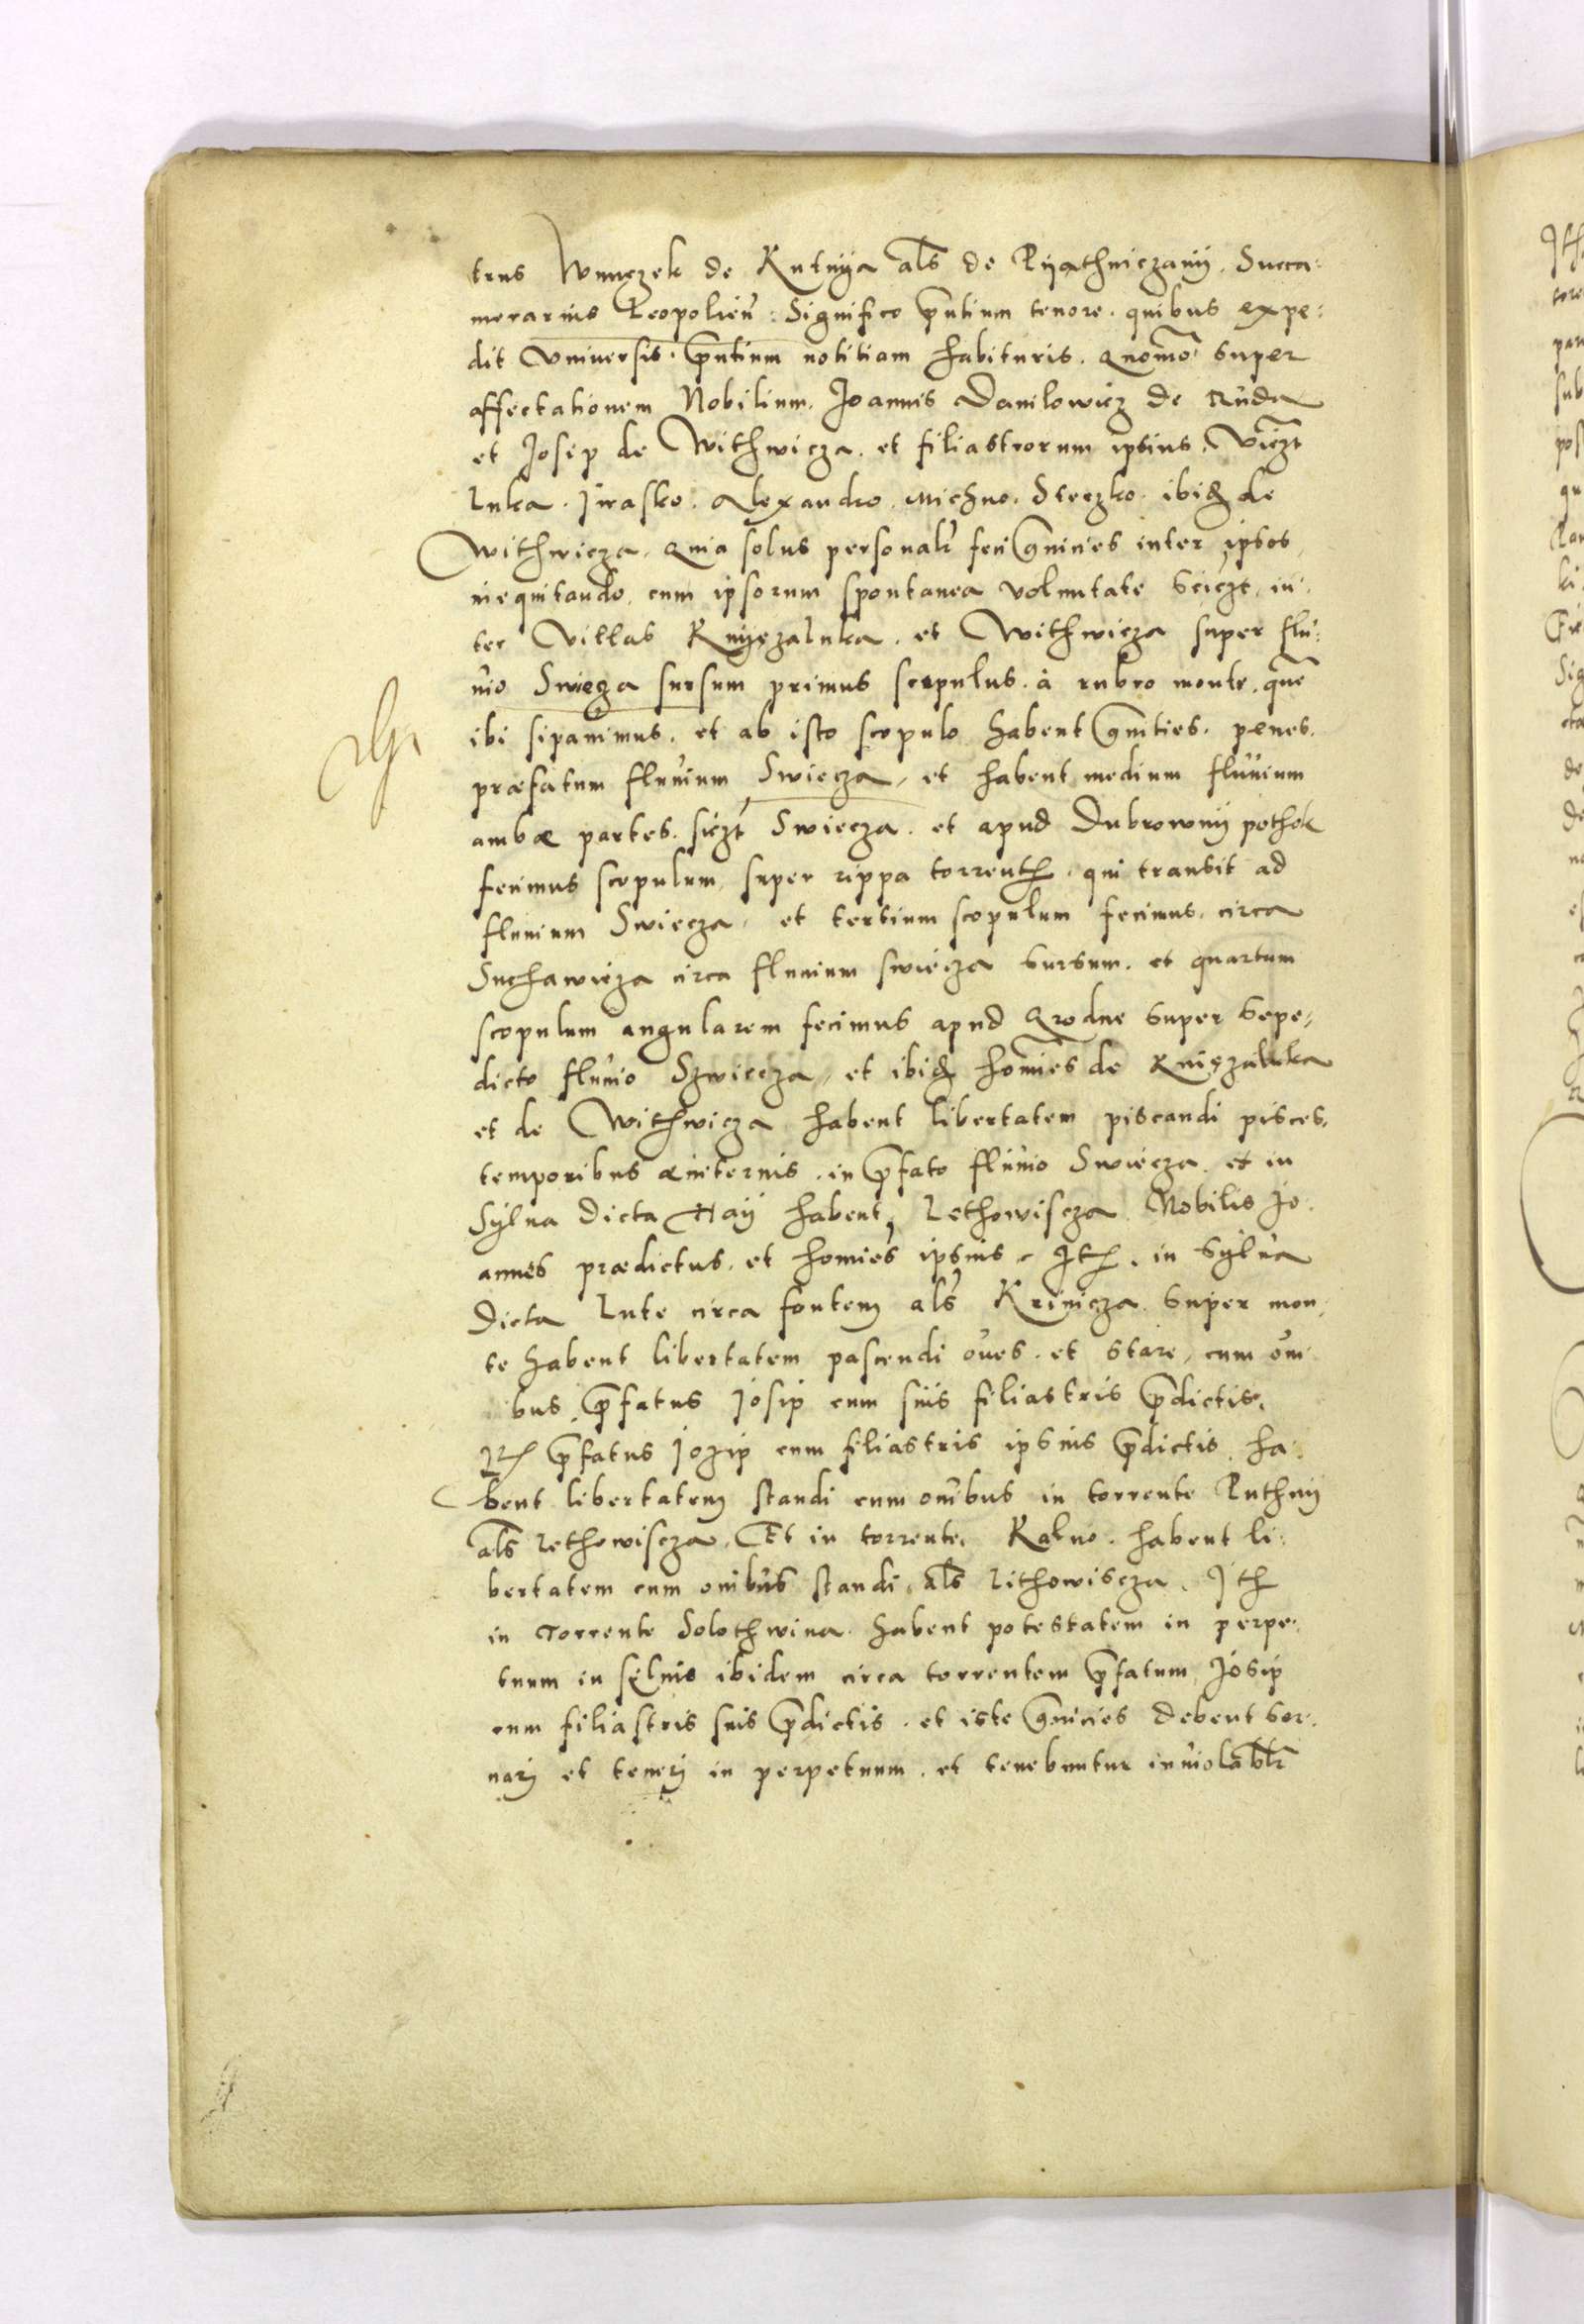 trus Wnuczek de Kutnya als de Pyathniczany. Succa:
merarius Leopolien: Significo pntium tenore. quibus expe:
dit Universis. pntium notitiam habituris. quomo super
affectationem Nobilium. Joannis Danilowicz de Ruda
et Josip de Withwicza. et filiastrorum ipsius. viczt
Luka. Jwasko. Alexandro. Michno. Steczko. ibid de
Withwicza. quia solus personalr feci gnicies inter ipsos
niequitando. cum ipsorum spontanea voluntate sciczt. in
ter Villas Knyezaluka. et Withwicza super flu:
uio Swicza sursum primus scopulus. à rubro monte. que
ibi sipauimus. et ab isto scopulo habent gnities. penes.
præfatum fluuium Swiecza, et habent medium fluuium
ambæ partes. siczt Swiecza. et apud Dubrowny pothok
fecimus scopulum super rippa torrent. qui transit ad
fluuium Swiecza. et tertium scopulum fecimus. circa
Suchawicza circa fluuium swiecza sursum. et quartum
scopulum angularem fecimus apud Grodne super sepe,
dicto fluuio Szwiecza, et ibid homies de Kniezaluka
et de Withwicza habent libertatem piscandi pisces,
temporibus æuiternis. in pfato fluuio Swiecza. et in
Sylua Dicta Hay habent, Lethowiscza. Nobilis Jo.
annes prædictus. et homies ipsius. It. in sylua
Dicta Lute circa fontem als Krinicza. super mon,
te habent libertatem pascendi oues. et stare, cum oui
bus pfatus Josip cum suis filiastris pdictis.
It pfatus Jozip cum filiastris ipsius pdictis. ha:
bent libertatem standi cum ouibus in torrente Ruthny
als Lethowiscza. Et in torrente. Kalno. habent li:
bertatem cum ouibus standi. als Lithowiscza. Ith
in Torrente Solothwina habent potestatem in perpe:
tuum in syluis ibidem circa torrentem pfatum, Josip
cum filiastris suis pdictis. et iste gnicies debent ser.
uari et teneri in perpetuum. et tenebuntur inuiolabtr